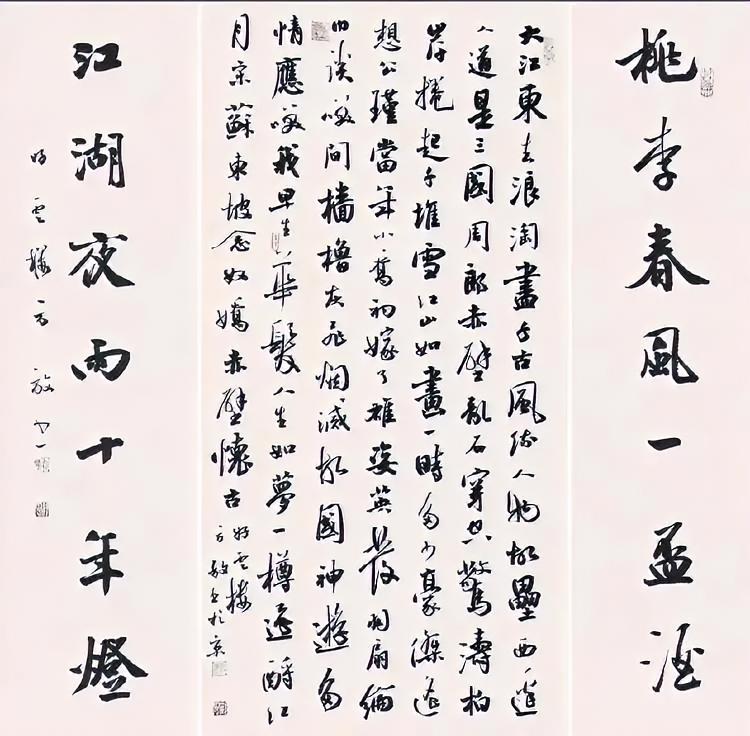 桃李春風一盃酒
大江東去浪淘盡千古風流人物故壘西邊
人道是三國周郎赤壁亂石穿空驚濤拍
岸捲起千堆雪江山如畫一時多少豪傑遙
想公瑾當年小喬初嫁了雄姿英發羽扇綸
巾談笑間檣櫓灰飛烟滅故國神遊多
情應笑我早生華髮人生如夢一樽還酹江
月宋蘇東坡念奴嬌赤壁懷古
雲樓
方書於京
江湖夜雨十年燈
雲樓方書